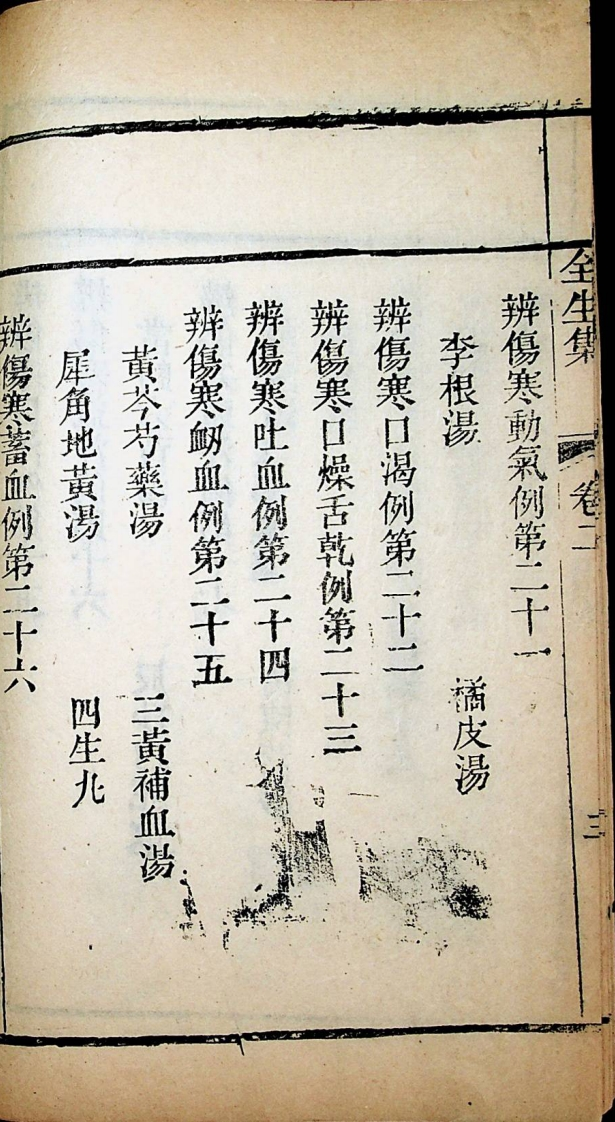 全生集 卷二 三
辨傷寒動氣例第二十一
李根湯 橘皮湯
辨傷寒口渴例第二十二
辨傷寒口燥舌乾例第二十三
辨傷寒吐血例第二十四
辨傷寒衂血例第二十五
黃芩芍藥湯 三黃補血湯
犀角地黃湯 四生丸
辨傷寒蓄血例第二十六